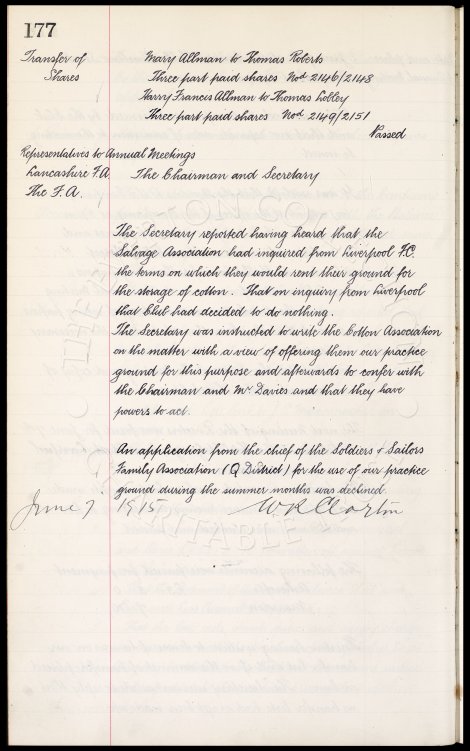 177
Transfer of Mary Allman to Thomas Roberts
Shares Three part paid shares Nos 2146/2148
Harry Francis Allman to Thomas Lobley
Three part paid shares Nos 2149/2151
Passed
Representatives to Annual Meetings
Lancashire F.A. The Chairman and Secretary
The F.A.
The Secretary reported having heard that the
Salvage Association had inquired from Liverpool F.C.
the terms on which they would rent their ground for
the storage of cotton. That on inquiry from Liverpool
that Club had decided to do nothing.
The Secretary was instructed to write the Cotton Association
on the matter with a view of offering them our practice
ground for this purpose and afterwards to confer with
the Chairman and Mr Davies and that they have
powers to act.
An application from the chief of the Soldiers & Sailors
Family Association (Q District) for the use of our practice
ground during the summer months was declined.
June 7 1915 W.R. Clayton